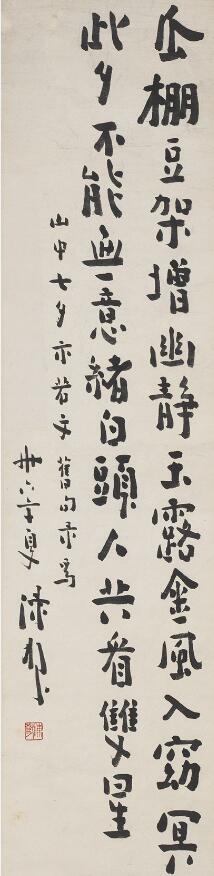 瓜棚豆架增幽靜玉露金風入窈冥
此夕不能無意緒白頭人共看雙星
山中七夕示若文舊句录為
卅六年夏